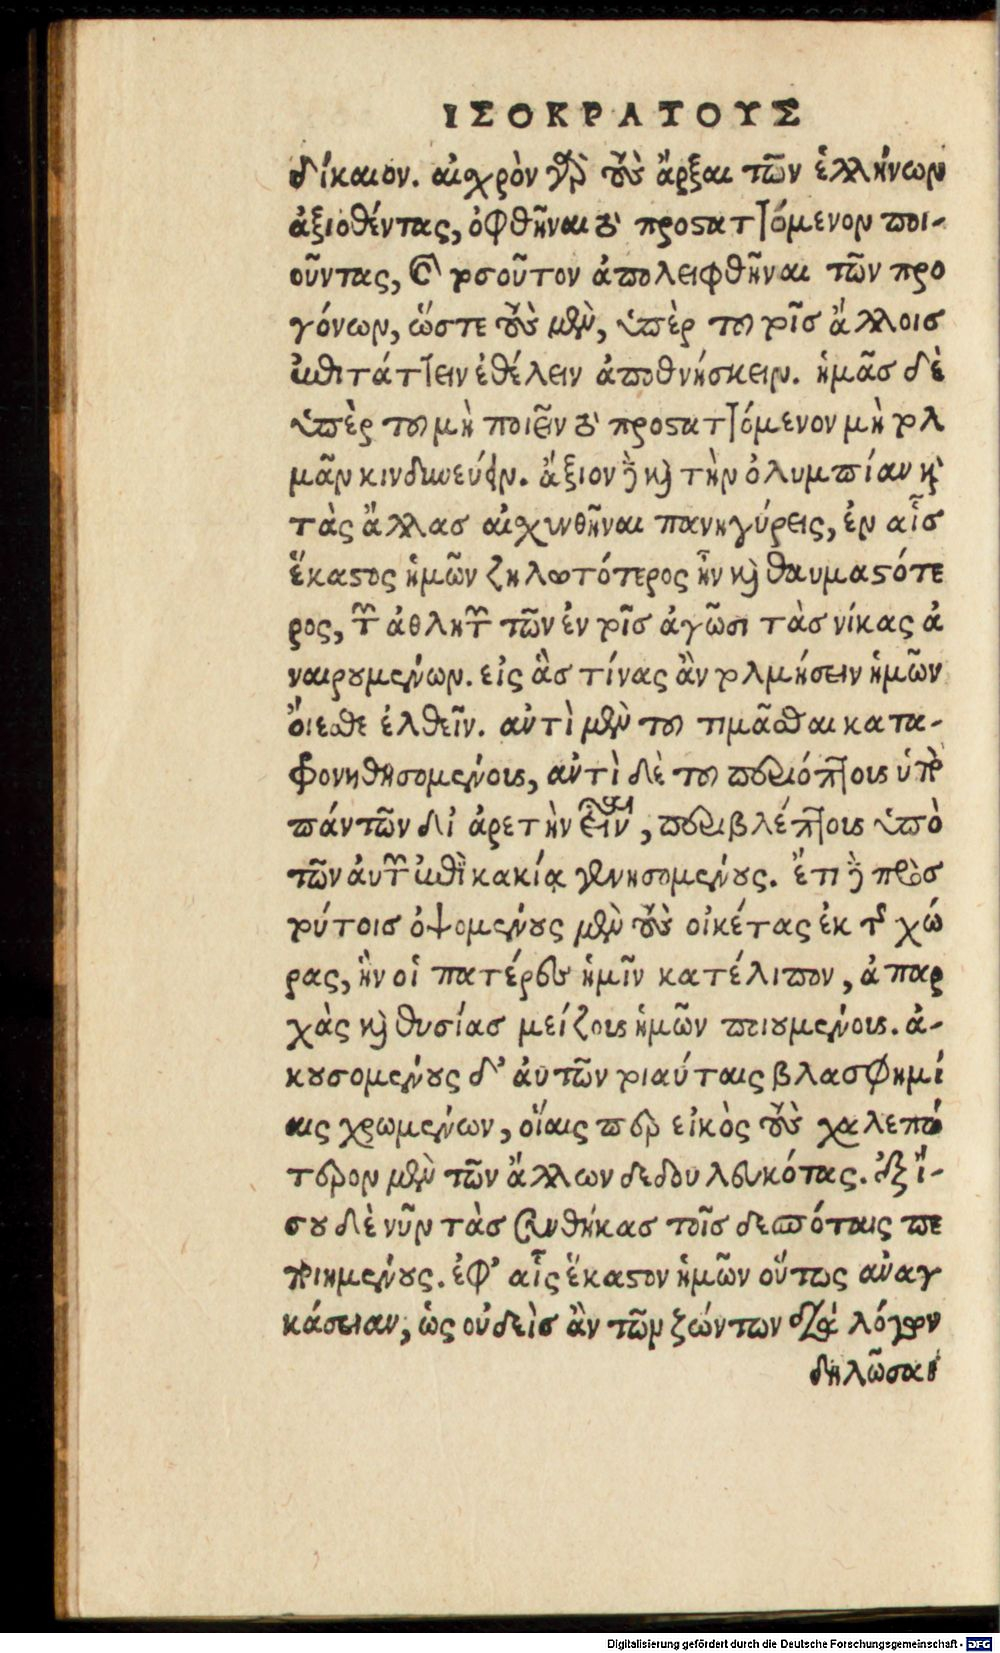 ΙΣΟΚΡΑΤΟΥΣ
δίκαιον. αἰσχρὸν γὰρ τοὺς ἄρξαι τῶν ἑλλήνων
ἀξιωθέντας, ὀφθῆναι τὸ προσταττόμενον ποι-
οῦντας, καὶ τοσοῦτον ἀπολειφθῆναι τῶν προ
γόνων, ὥστε τοὺς μὲν, ὑπὲρ τοῦ τοῖς ἄλλοις
ἐπιτάττειν ἐθέλειν ἀποθνήσκειν. ἡμᾶς δὲ
ὑπὲρ τοῦ μὴ ποιεῖν τὸ προσταττόμενον μὴ τολ
μᾶν κινδυνεύειν. ἄξιον δὲ καὶ τὴν ὀλυμπίαν καὶ
τὰς ἄλλας αἰσχυνθῆναι πανηγύρεις, ἐν αἷς
ἕκαστος ἡμῶν ζηλωτότερος ἦν καὶ θαυμαστότε
ρος, τῶν ἀθλητῶν τῶν ἐν τοῖς ἀγῶσι τὰς νίκας ἀ
ναιρουμένων. εἰς ἃς τίνας ἂν τολμήσειν ἡμῶν
οἴεσθε ἐλθεῖν. ἀντὶ μὲν τοῦ τιμᾶσθαι κατα-
φρονηθησομένους, ἀντὶ δὲ τοῦ περιόπτους ὑπὸ
πάντων δι' ἀρετὴν εἶναι, περιβλέπτους ὑπὸ
τῶν αὐτῶν ἐπὶ κακίᾳ γενησομένους. ἔτι δὲ πρὸς
τούτοις ὀψομένους μὲν τοὺς οἰκέτας ἐκ τῆς χώ
ρας, ἣν οἱ πατέρες ἡμῖν κατέλιπον, ἀπαρ
χὰς καὶ θυσίας μείζους ἡμῶν ποιουμένους. ἀ-
κουσομένους δ' αὐτῶν τοιαύταις βλασφημί
αις χρωμένων, οἵαις περ εἰκὸς τοὺς χαλεπώ
τερον μὲν τῶν ἄλλων δεδουλευκότας. ἐξ ἴ-
σου δὲ νῦν τὰς συνθήκας τοῖς δεσπόταις πε
ποιημένους. ἐφ' αἷς ἕκαστον ἡμῶν οὕτως ἀναγ
κάσειαν, ὡς οὐδεὶς ἂν τῶν ζώντων διὰ λόγων
δηλῶσαι
Digitalisierung gefördert durch die Deutsche Forschungsgemeinschaft - DFG